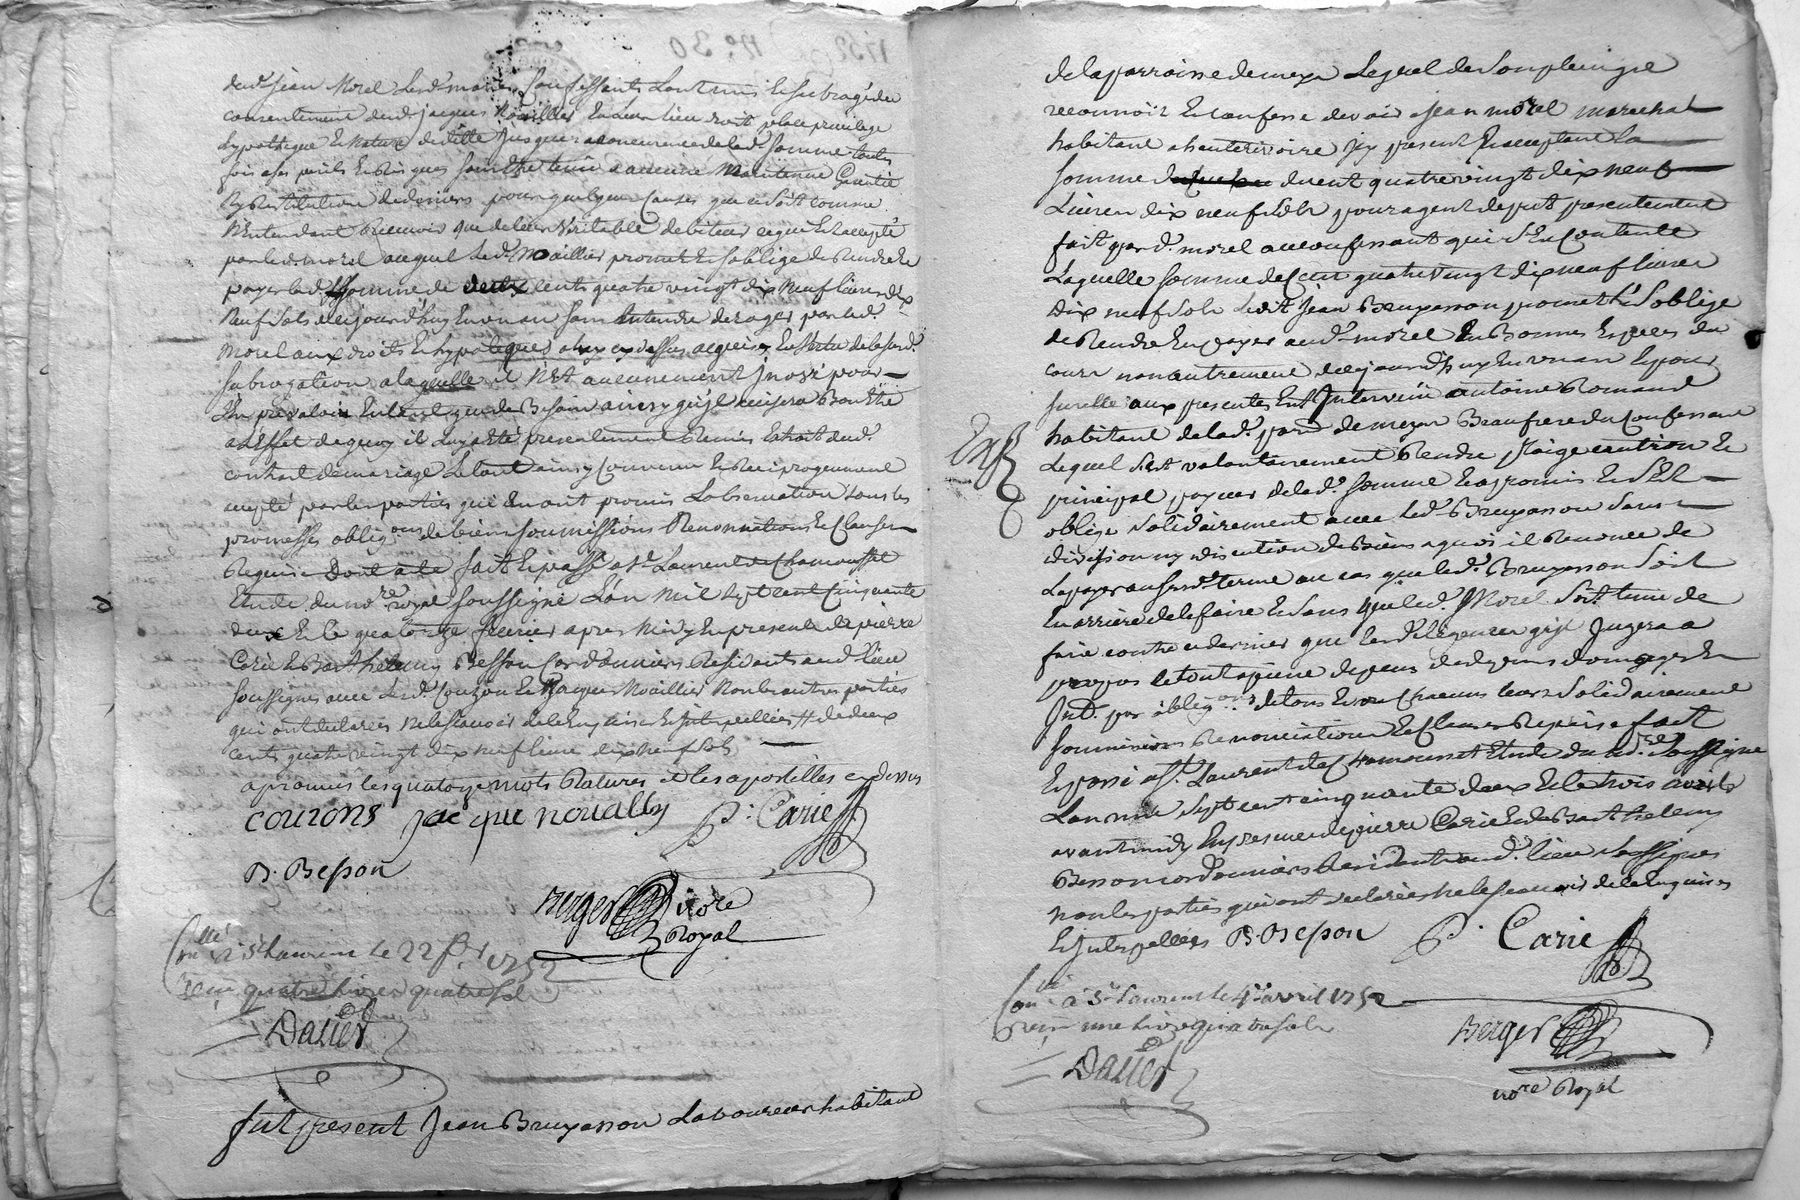 dud. Jean Morel led. mariés Confessants L'ont mis et subrogé du
consentement dud. jacques Noaillier en leur lieu droit place privilege
hypotheque et Nature de tille jusques a concurrence de lad. somme toutes
fois a ses perils et risques sans être tenu a aucune Maintenue Garentie
ny Restitution de deniers pour quelques Causes que ce soit comme
N'entendant Recevoir que de leur Veritable debiteur ce que Est accepté
par led. morel auquel led. Noaillier promet et s'oblige de Rendre et
payer lad. somme de deux cents quatre vingt dix neuf livres dix
Neuf sols de ce jourd'huy en un an sans Entendre deroger par led.
Morel aux droits et hypoteques a luy cy dessus acquises En Vertu de la susd.
subrogation a laquelle il N'est aucunement jnové pour
s'en prevaloir En tems que de Besoin ainsy qu'jl avisera Bon Etre
a L'effet de quoy il luy a Eté presentement Remis Extrait dud.
contrat de mariage Le tout ainsy Convenu et Reciproquement
accepté par les parties qui En ont promis L'observation sous les
promesses oblig.ons de biens soumissions Renonciations et Clauses
Requise Dont acte fait et passé a St. Laurent de Chamousset
Etude du no.re royal soussigné L'an Mil sept cent Cinquante
deux et le quatorze fevrier apres Midy En presence de pierre
Carie et Barthelemy Besson Cordonniers Residants aud. lieu
soussignés avec led. Couzon et Jacques Noaillier Non les autres parties
qui ont declarées ne le sçavoir de ce Enquises et jnterpellées # de deux
cents quatre vingt dix neuf livres dix neuf sols
aprouvés les quatorze mots Ratures et les apostilles cy dessus
couzons jacque noually P. Carie
B. Besson
Berger no.re
Royal
Con.llé à St Laurens le 22 f.er 1752
Reçu quatre livres quatre sols
Dauier
fut present Jean Bruyasson Laboureur habitant
de la parroisse de meys Lequel de son plein gré
reconnoit Et confesse devoir a jean morel marechal
habitant a hauterivoire jcy present Et acceptant la
somme de cent quatre vingt dix neuf
Livres dix neuf sols pour agent de put presentement
fait par d. morel au confessant qui s'en Contente
Laquelle somme de Cent quatre vingt dix neuf livres
dix neuf sols ledit Jean Bruyasson promet Et s'oblige
de Rendre Et payer aud. morel En Bonnes Especes du
cours non autrement de ce jourd'huy En un an Et pour
surette aux presentes Est Intervenu antoine Romand
habitant de lad. parr.se de meys Beaufrere du confessant
Lequel s'est volontairement Rendu Plaige caution Et
principal payeur de lad. somme Et a promis Et s'Est
obligé solidairement avec led. Bruyasson sans
division ny discution de Biens a quoi il Renonce de
La payer au susd. terme au cas que led. Bruyasson soit
En arriere de le faire Et sans que led. Morel soit tenu de
faire contre ce dernier que les diligences qu'jl Jugera a
propos le tout a peine de peux dedpens domages Et
Int. par oblig.ons de tous Et un Chacuns leurs solidairement
soumissions Renonciations Et Clauses Requise fait
Et passé a St. Laurent de Chamousset Etude du no.re royal soussigné
L'an mil sept cent cinquante deux Et le trois avril
avant midy En presence de pierre Carie Et de Barthelemy
Besson cordonniers Residents aud. lieu soussignés
non les parties qui ont declarées ne le sçavoir de ce Enquises
Et jnterpellées B. Besson P. Carie
Con.lé à St Laurens le 4e avril 1752
Reçu une livre quatre sols
Dauier
Berger
no.re Royal